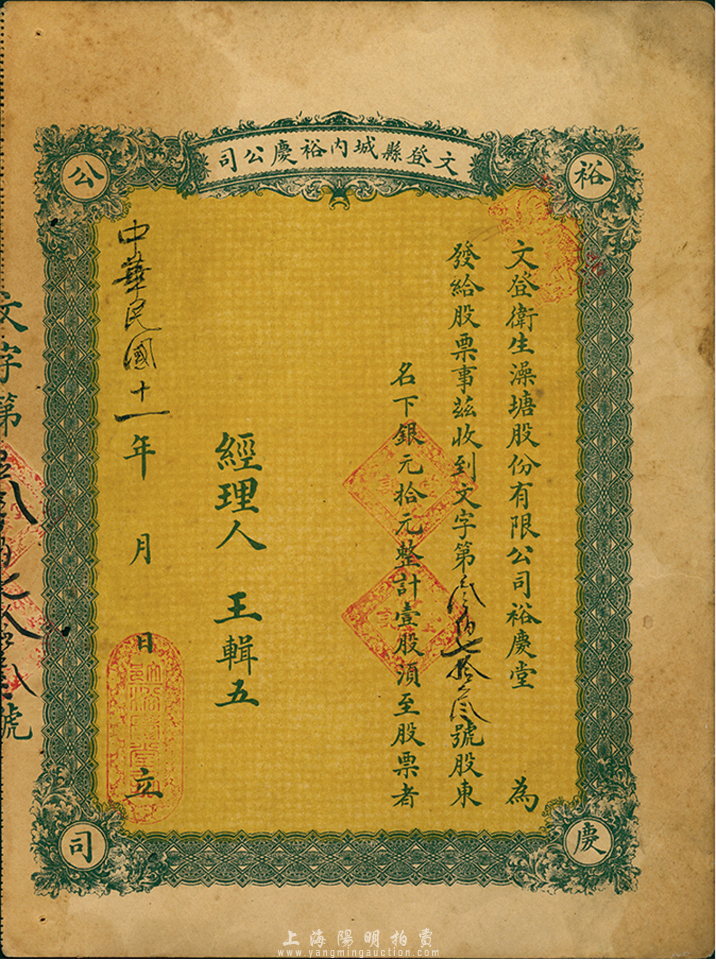 文登縣城內裕慶公司
裕
慶
公
司
文登衛生澡塘股份有限公司裕慶堂 為
發給股票事茲收到文字第 百七拾 號股東
名下銀元拾元整計壹股須至股票者
經理人 王輯五
中華民國十一年 月 日 立
文字第 號
上海陽明拍賣
www.yangmingauction.com